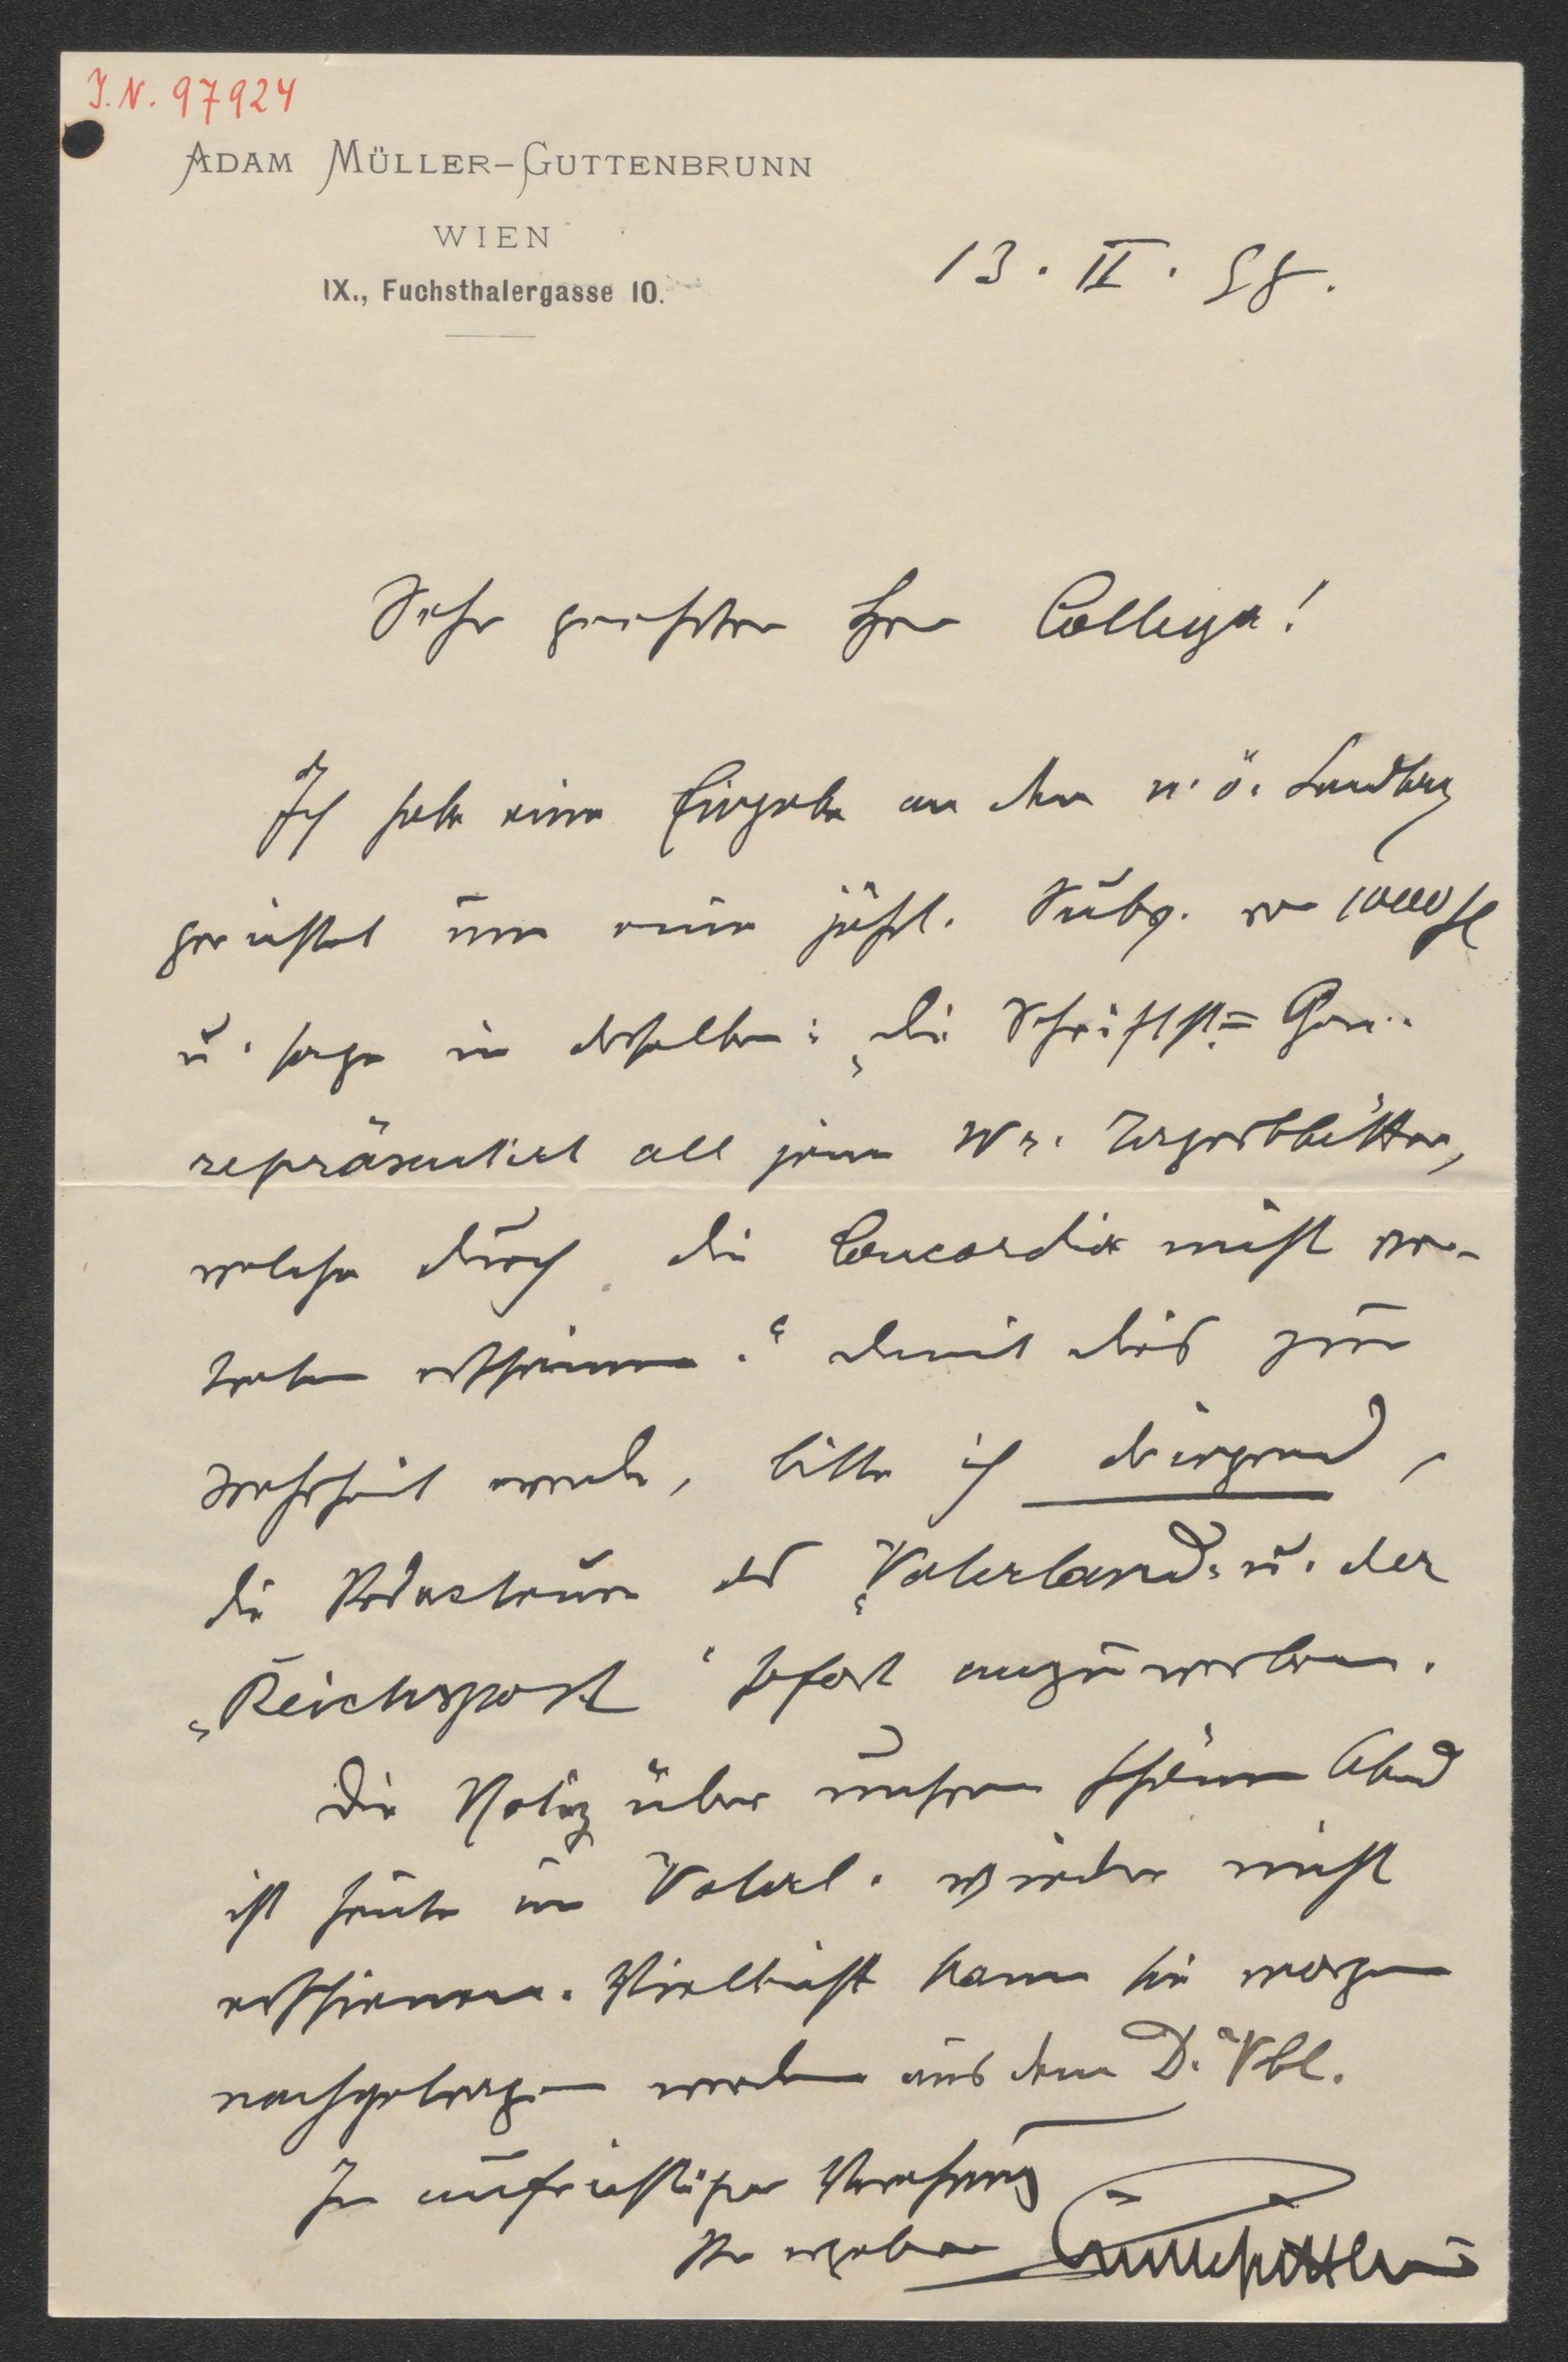 I. N. 97924
ADAM MÜLLER-GUTTENBRUNN
WIEN
IX., Fuchsthalergasse 10.
13. II. 98.
Sehr geehrter Herr Collega!
Ich habe eine Eingabe an den n. ö. Landtag
gerichtet um eine jährl. Subv. von 1000 fl
u. sage in derselben: „die Schriftst.= Gen.
repräsentirt all jene Wr. Tagesblätter,
welche durch die Concordia nicht ver-
treten erscheinen.“ Damit dies zur
Wahrheit werde, bitte ich dringend,
die Redacteure des „Vaterland“ u. der
„Reichspost“ sofort anzuwerben.
Die Notiz über unseren schönen Abend
ist heute im Vaterl. wieder nicht
erschienen. Vielleicht kann sie morgen
nachgetragen werden aus dem D. Vbl.
In aufrichtiger Verehrung
Ihr ergebener